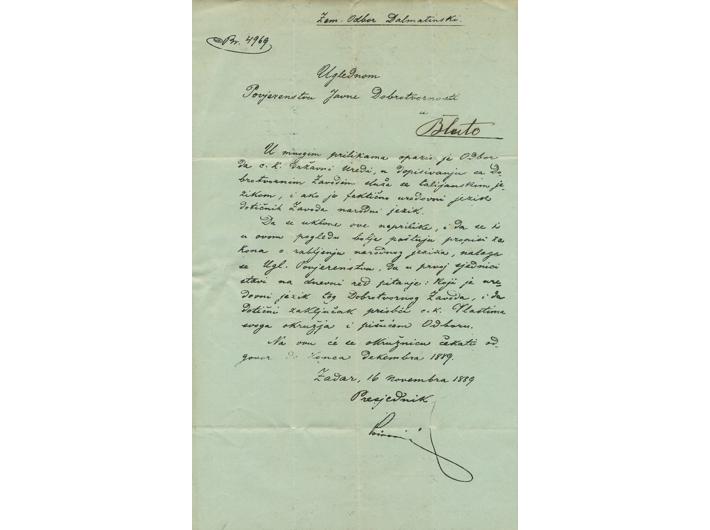 Zem. Odbor Dalmatinski.
Br. 4969
Uglednom
Povjerenstvu Javne Dobrotvornosti
u
Blato
U mnogim prilikama opazio je Odbor
da c. k. Državni Uredi, u dopisivanju sa Do-
brotvornim Zavodom služe se talijanskim je-
zikom, i ako je faktično uredovni jezik
dotičnih Zavoda narodni jezik.
Da se uklone ove neprilike, i da se
u ovom pogledu bolje poštuju propisi za-
kona o rabljenju narodnog jezika, nalaga
se Ugl. Povjerenstvu, da u prvoj sjednici
stavi na dnevni red pitanje: Koji je ure-
dovni jezik tog Dobrotvornog Zavoda, i da
dotični zaključak priobći c. k. Vlastima
svoga okružja i pišućem Odboru.
Na ovu će se okružnicu čekati od-
govor do konca dekembra 1889.
Zadar, 16 novembra 1889
Presjednik